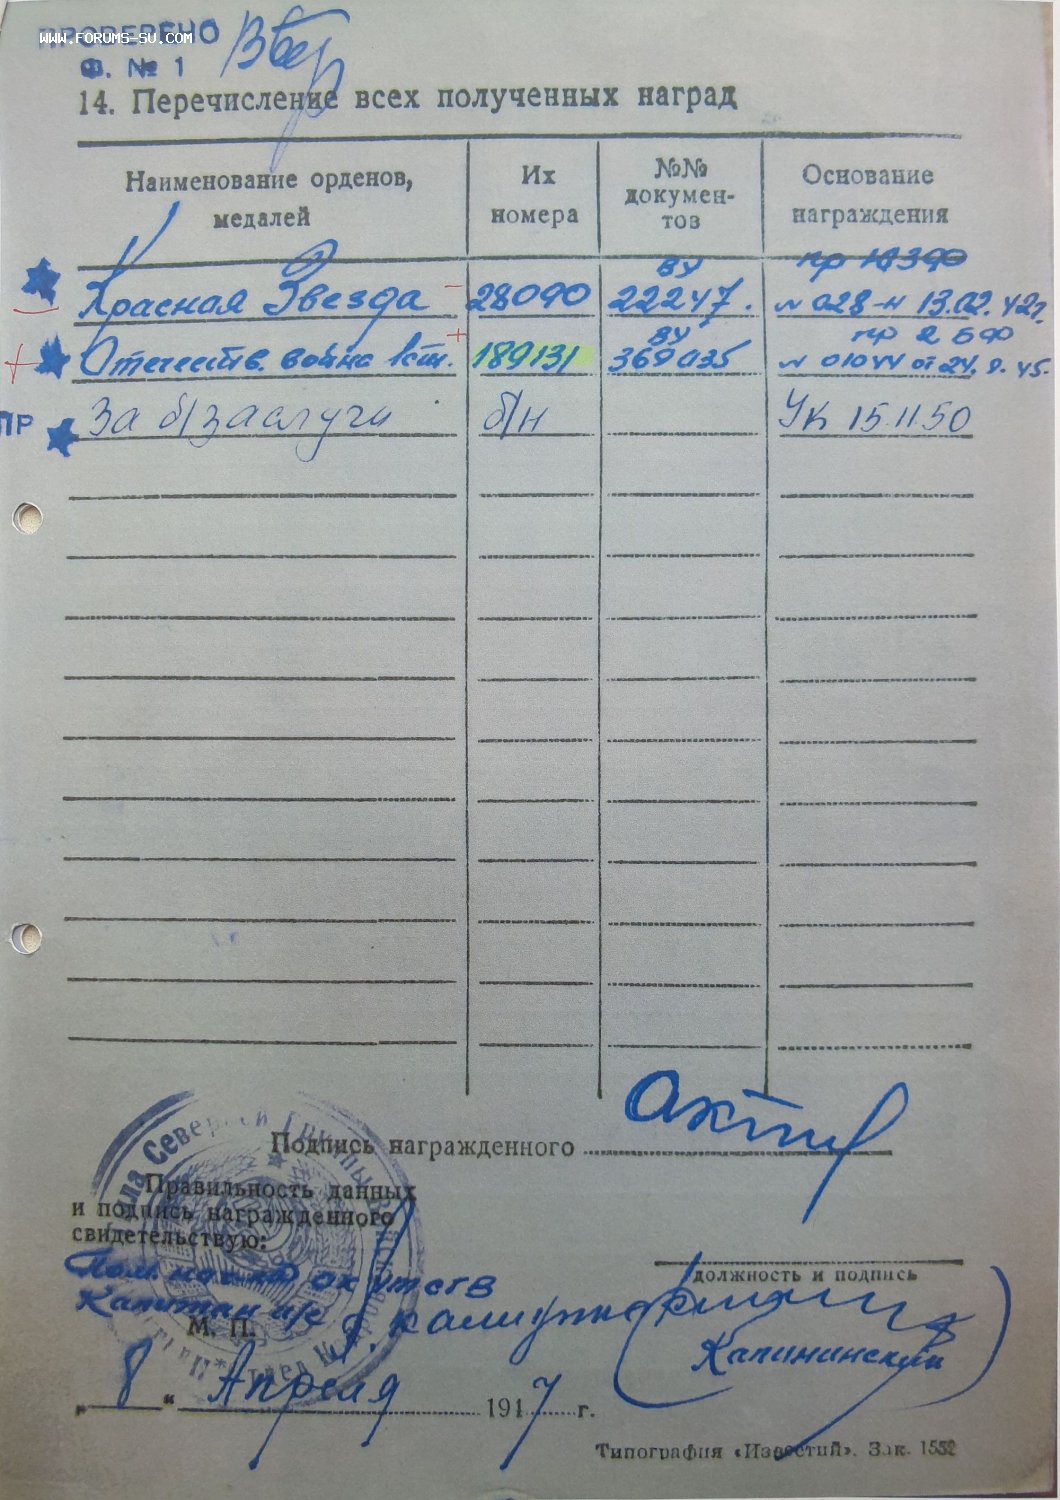 ПРОВЕРЕНО
WWW.FORUMS-SU.COM
Ф. № 1
14. Перечисление всех полученных наград
Наименование орденов, медалей
Их номера
№№ докумен-тов
Основание награждения
пр 10390
Красная Звезда
28090
ВУ 22247.
№ 028-н 13.02.42г.
Отечеств. война 1ст.
189131
ВУ 369035
пр 2590
№ 01044 от 24.9.45.
ПР
За б/заслуги
б/н
Ук 15.11.50
Подпись награжденного
Правильность данных
и подпись награжденного
свидетельствую:
должность и подпись
Капитан и/с
М. П.
(Калининский
„ 8 “ Апреля 1947 г.
Типография «Известий». Зак. 1552